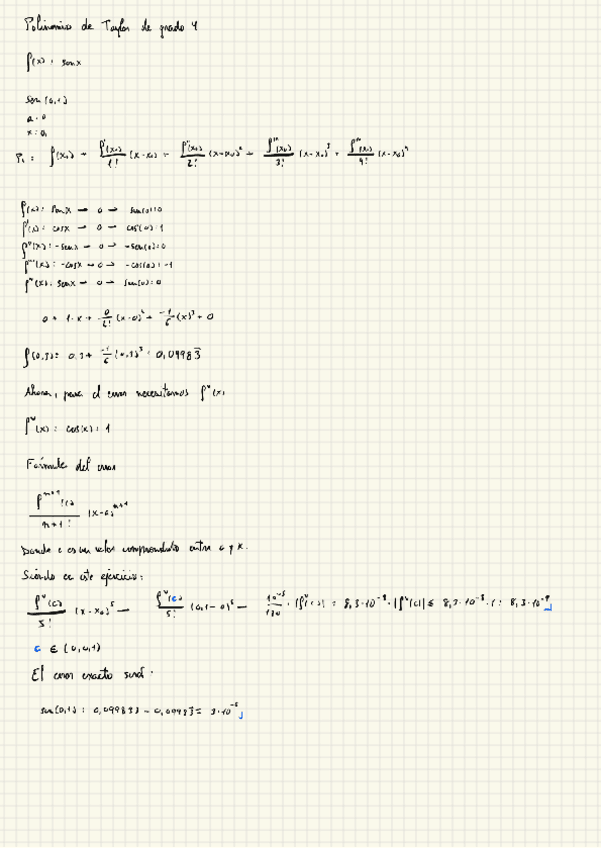 Polinomio de Taylor de grado 4
f(x) = senx
sen (0,1)
a = 0
x = 0,1
P₄ = f(x₀) + f'(x₀)/1! (x-x₀) + f''(x₀)/2! (x-x₀)² + f'''(x₀)/3! (x-x₀)³ + f''''(x₀)/4! (x-x₀)⁴
f(x) = senx → 0 → sen(0)=0
f'(x) = cosx → 0 → cos(0)=1
f''(x) = -senx → 0 → -sen(0)=0
f'''(x) = -cosx → 0 → -cos(0)=-1
f''''(x) = senx → 0 → sen(0)=0
0 + 1·x + 0/2! (x-0)² + -1/6 (x)³ + 0
f(0,1) = 0,1 + -1/6 (0,1)³ = 0,09983
Ahora, para el error necesitamos fᵛ(x)
fᵛ(x) = cos(x) = 1
Fórmula del error
fⁿ⁺¹(c)/n+1! (x-a)ⁿ⁺¹
Donde c es un valor comprendido entre a y x.
Siendo en este ejercicio:
fᵛ(c)/5! (x-x₀)⁵ → fᵛ(c)/5! (0,1-0)⁵ → 10⁻⁵/120 · |fᵛ(c)| = 8,3·10⁻⁸ · |fᵛ(c)| ≤ 8,3·10⁻⁸ · 1 = 8,3·10⁻⁸
c ∈ (0,0,1)
El error exacto será:
sen(0,1) = 0,099833 - 0,09983 = 3·10⁻⁶